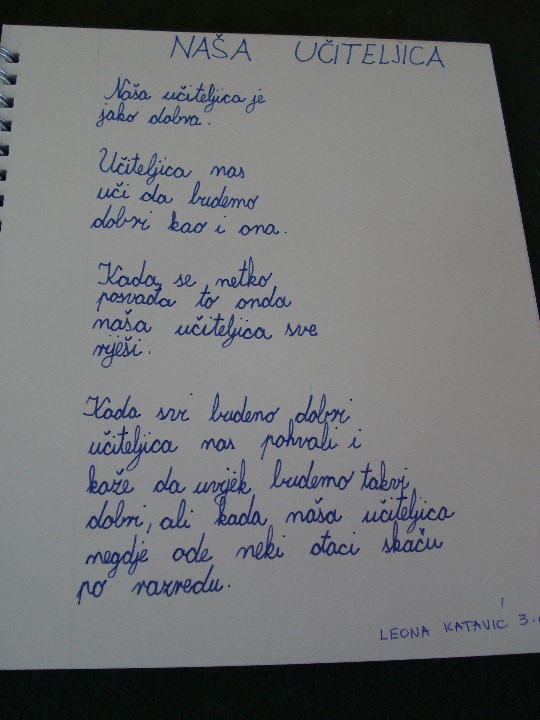 NAŠA UČITELJICA
Naša učiteljica je
jako dobra.
Učiteljica nas
uči da budemo
dobri kao i ona.
Kada se netko
posvađa to onda
naša učiteljica sve
riješi.
Kada svi budeno dobri
učiteljica nas pohvali i
kaže da uvjek budemo takvi
dobri, ali kada naša učiteljica
negdje ode neki đaci skaču
po razredu.
LEONA KATAVIĆ 3.